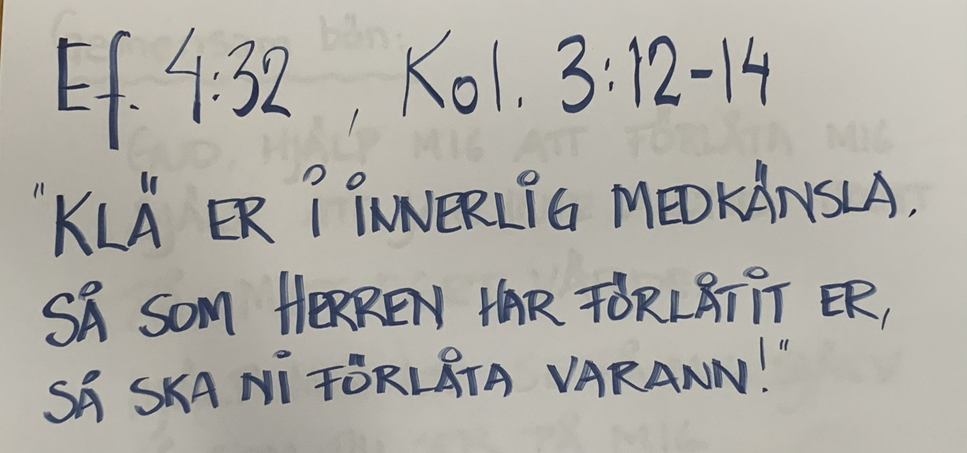 Ef. 4:32, Kol. 3:12-14
"KLÄ ER I INNERLIG MEDKÄNSLA.
SÅ SOM HERREN HAR FÖRLÅTIT ER,
SÅ SKA NI FÖRLÅTA VARANN!"